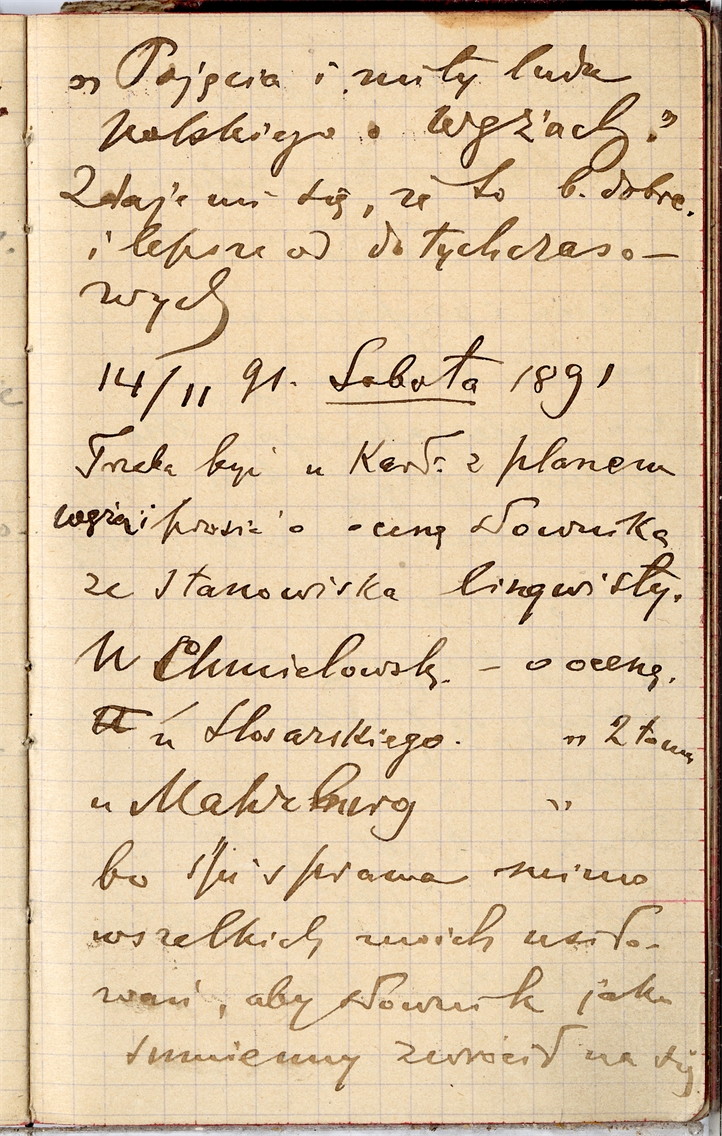 „Pojęcia i mity ludu
polskiego o wężach."
Zdaje mi się, że to b. dobre.
i lepsze od dotychczaso-
wych
14/11 91. Sobota 1891
Trzeba być u Karł: z planem
węży i prosić o ocenę słownika
ze stanowiska lingwisty.
U Chmielowsk. – o ocenę.
u Slosarskiego. „ 2 tomu
u Mahrburg „
bo śpi sprawa mimo
wszelkich moich usiło-
wań, aby słownik jako
sumienny zwrócił na się